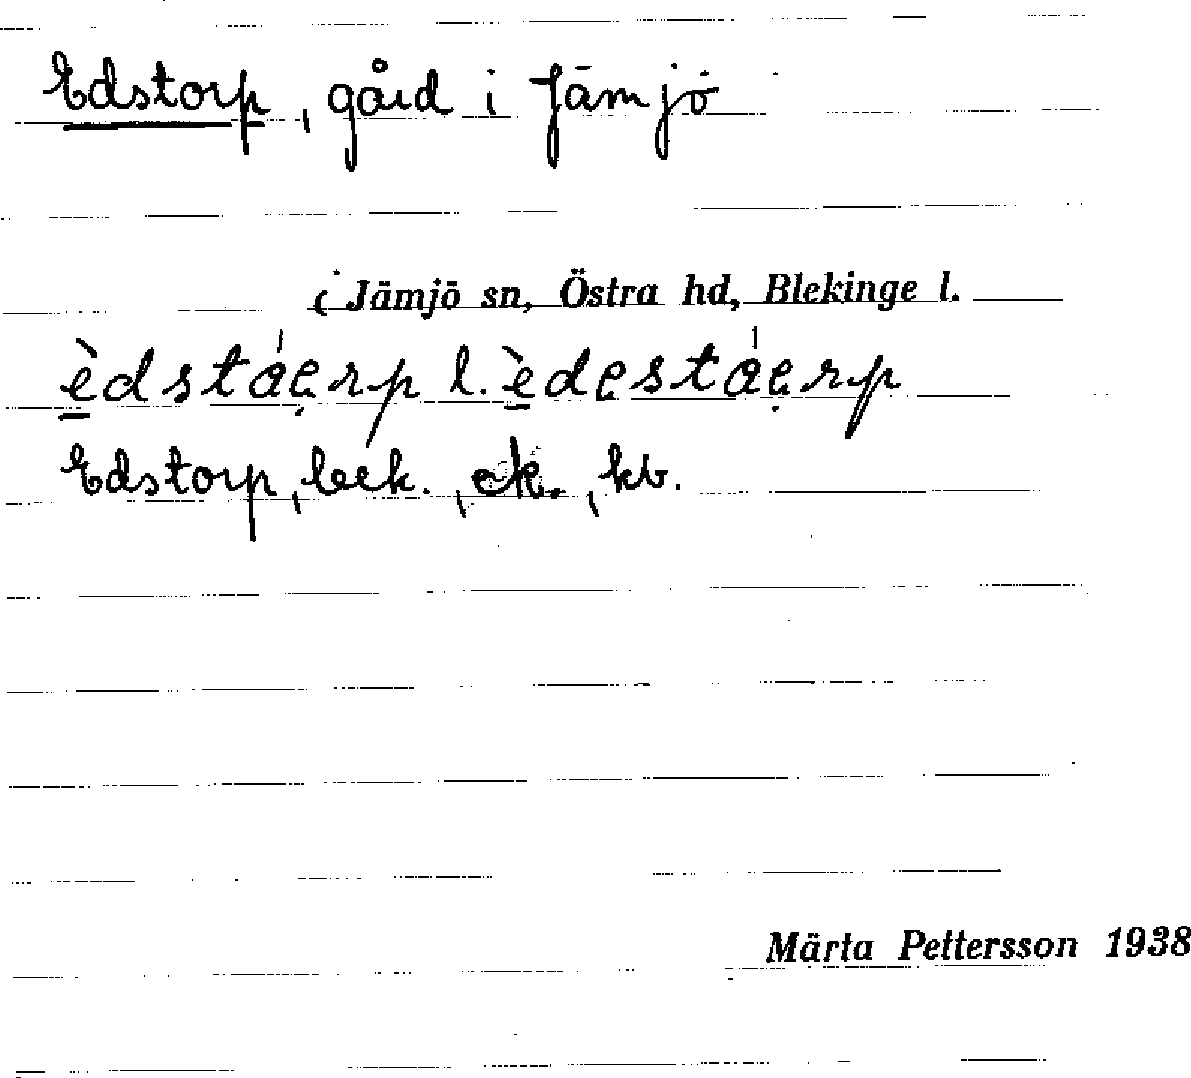 Edstorp, gård i Jämjö
i Jämjö sn, Östra hd, Blekinge l.
èdstáe̥rp l. èdestáe̥rp
Edstorp, beck., ek., kb.
Märta Pettersson 1938